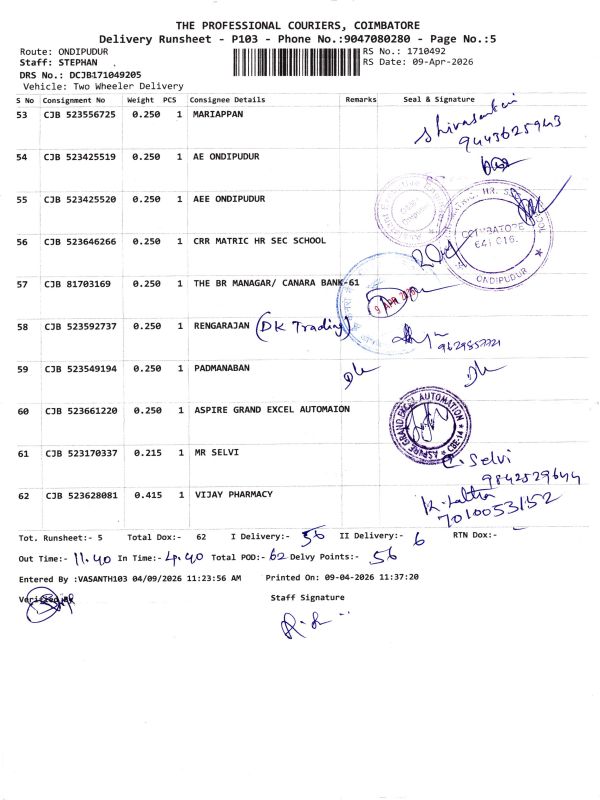 THE PROFESSIONAL COURIERS, COIMBATORE
Delivery Runsheet - P103 - Phone No.:9047080280 - Page No.:5
Route: ONDIPUDUR RS No.: 1710492
Staff: STEPHAN RS Date: 09-Apr-2026
DRS No.: DCJB171049205
Vehicle: Two Wheeler Delivery
S No Consignment No Weight PCS Consignee Details Remarks Seal & Signature
53 CJB 523556725 0.250 1 MARIAPPAN
9443625943
54 CJB 523425519 0.250 1 AE ONDIPUDUR
55 CJB 523425520 0.250 1 AEE ONDIPUDUR
56 CJB 523646266 0.250 1 CRR MATRIC HR SEC SCHOOL
COIMBATORE
641 016.
ONDIPUDUR
57 CJB 81703169 0.250 1 THE BR MANAGAR/ CANARA BANK-61
9 APR
58 CJB 523592737 0.250 1 RENGARAJAN (DK Trading)
59 CJB 523549194 0.250 1 PADMANABAN
60 CJB 523661220 0.250 1 ASPIRE GRAND EXCEL AUTOMAION
ASPIRE GRAND EXCEL AUTOMATION * CBE-14 *
61 CJB 523170337 0.215 1 MR SELVI
C. Selvi
9842529644
62 CJB 523628081 0.415 1 VIJAY PHARMACY
7010053152
Tot. Runsheet:- 5 Total Dox:- 62 I Delivery:- 56 II Delivery:- 6 RTN Dox:- -
Out Time:- 11.40 In Time:- 4.40 Total POD:- 62 Delvy Points:- 56
Entered By :VASANTH103 04/09/2026 11:23:56 AM Printed On: 09-04-2026 11:37:20
Verified By Staff Signature